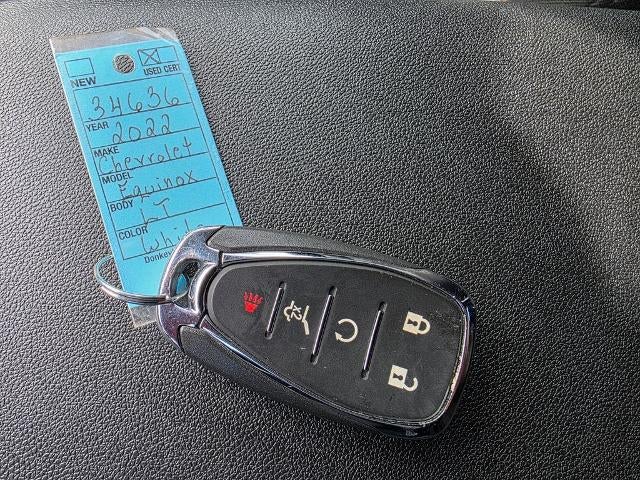 NEW
USED CERT
34636
YEAR 2022
MAKE Chevrolet
MODEL Equinox
BODY LT
COLOR
x2